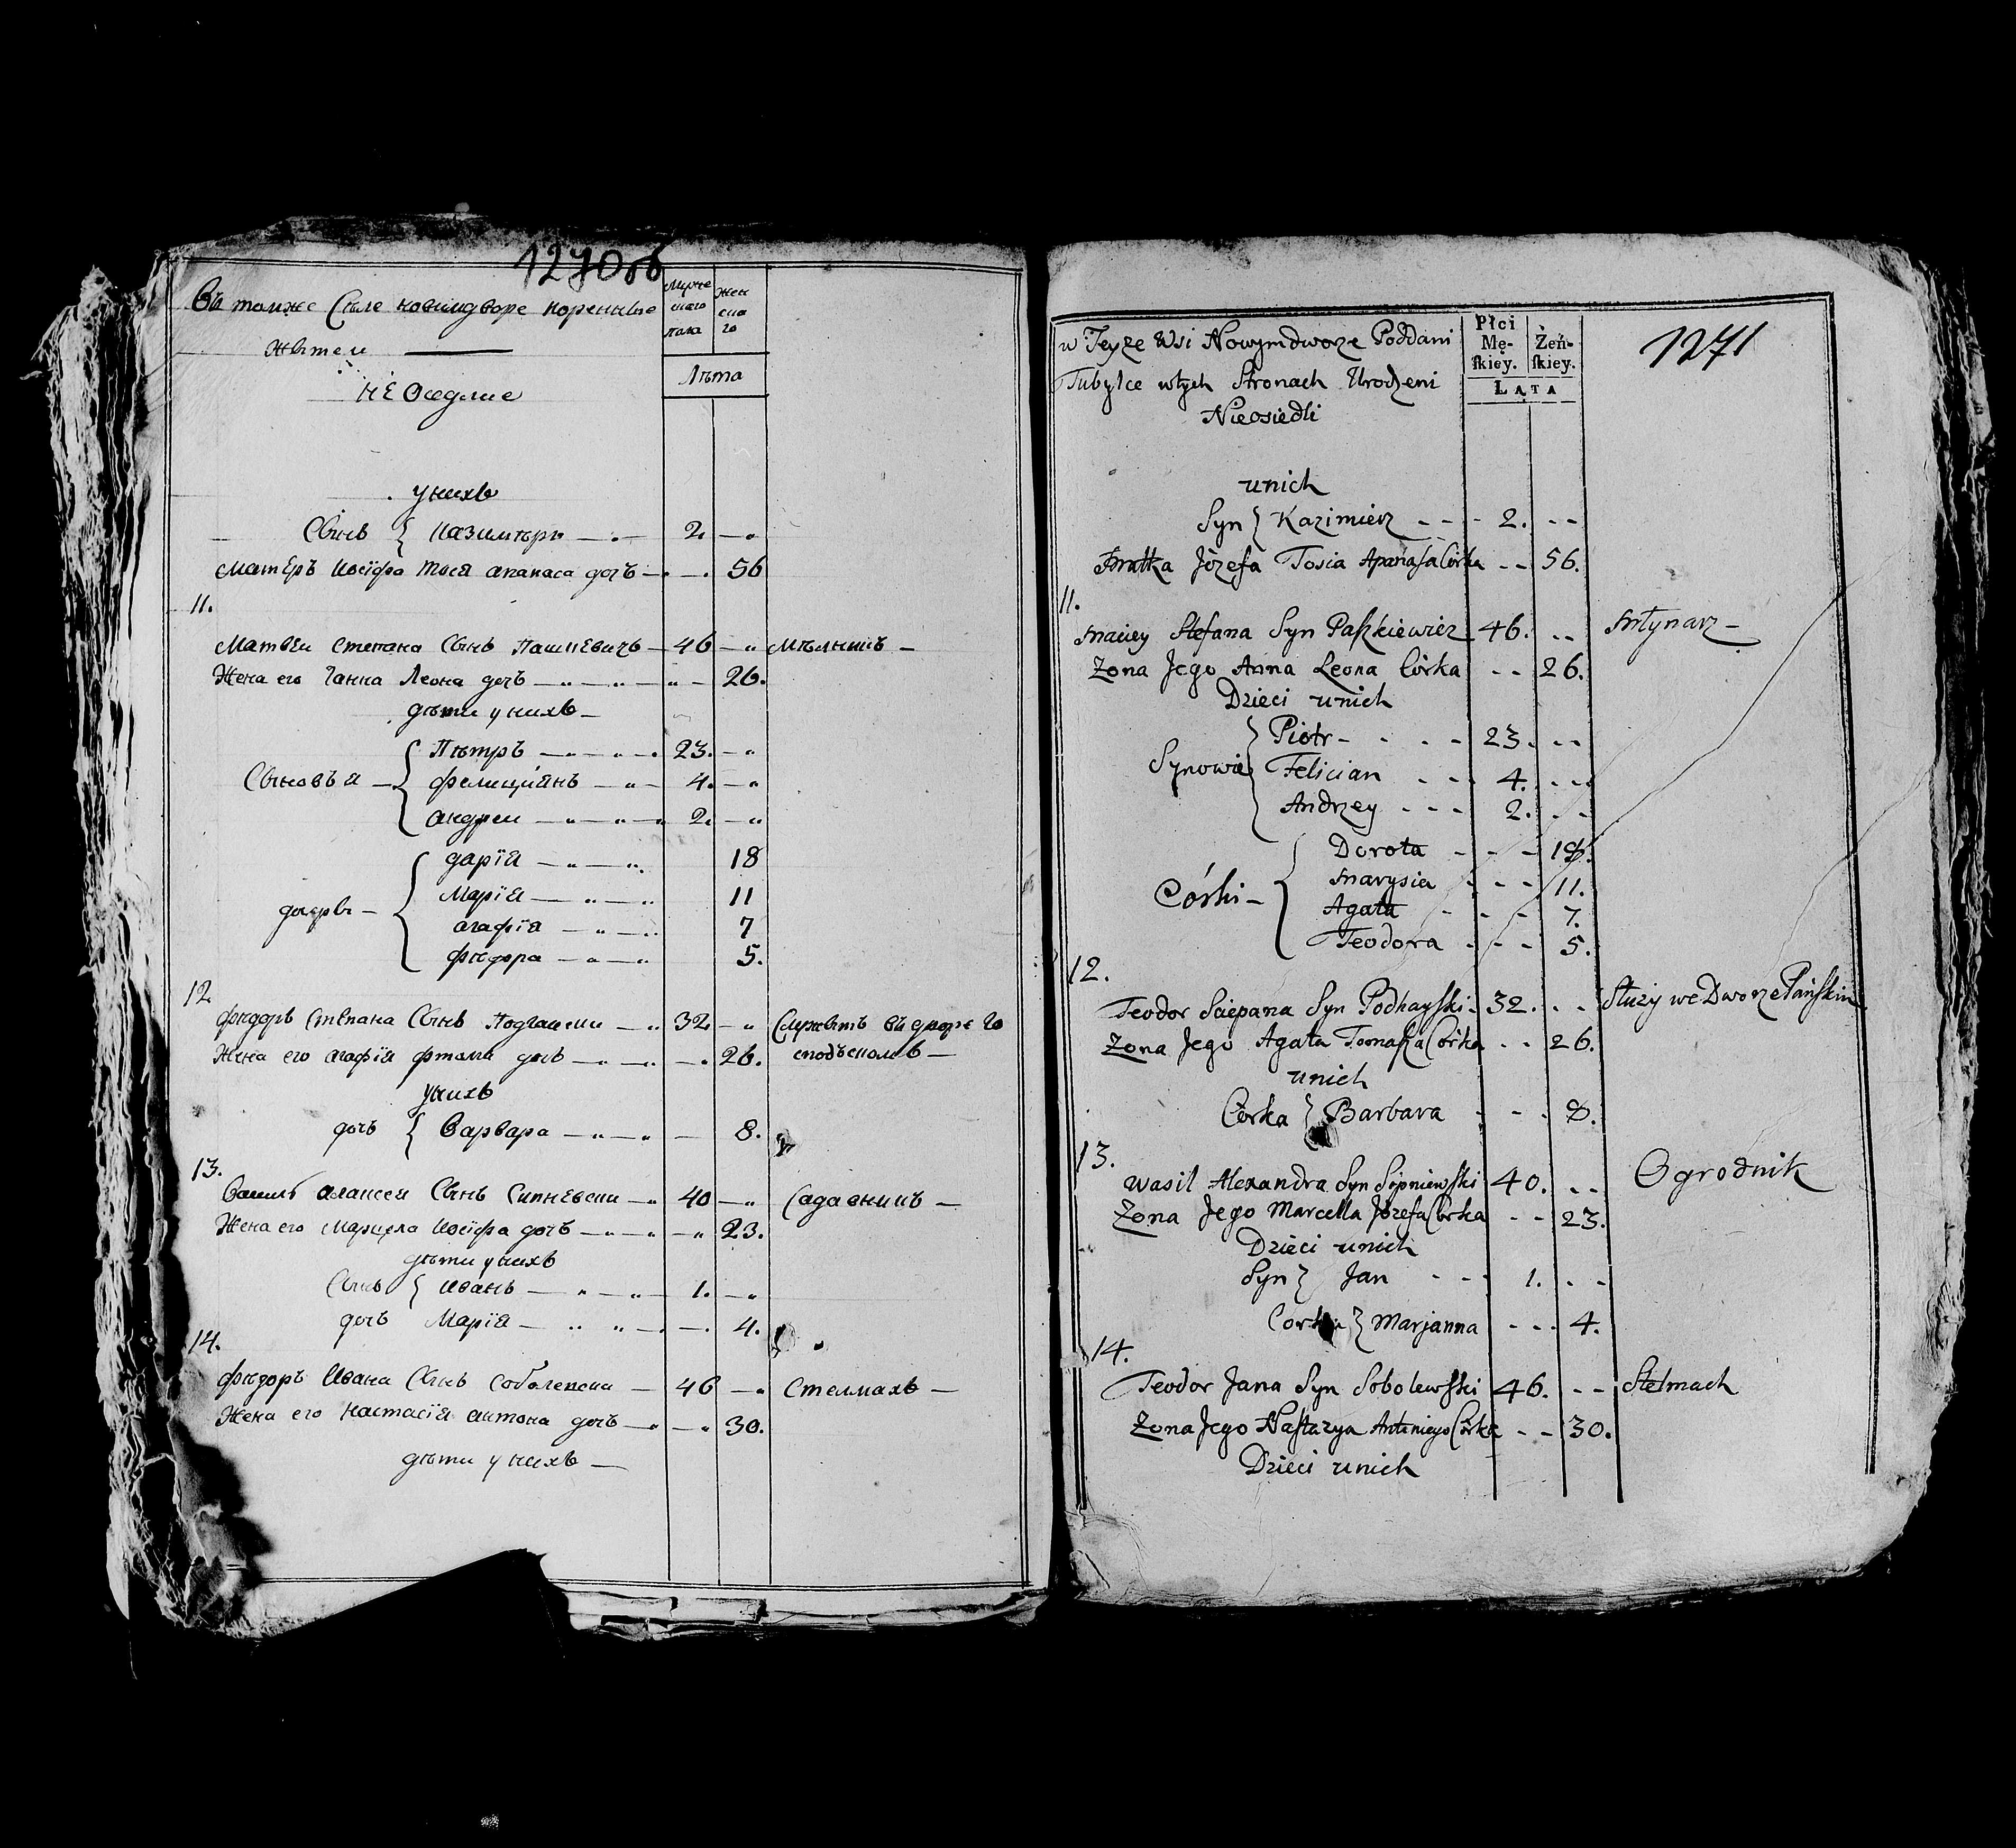 1270об
Въ томже Селе новимдворе коренные
Жители
НЕ Оседлие
Муже
скаго
пола
Жен
ска
го
Лѣта
у нихъ
Сынъ { Казимѣръ 2.
Матѣръ Иосїфа Тося апанаса дочъ 56
11.
Матвѣи степана Сынъ Пашкевичъ 46 Мѣлникъ
Жена его Ганна Леона дочъ 26.
дѣти у нихъ
Сыновъя { Пѣтръ 23.
фелицианъ 4.
андреи 2.
дочерѣ { дарїя 18
Марїя 11
агафїя 7
фѣдора 5.
12.
фѣдоръ Степана Сынъ Подгаиски 32 Служитъ въ дворе го
Жена его агафїя фтома дочъ 26. сподъскомъ
у нихъ
дочъ { Варвара 8.
13.
Василъ алаксея Сынъ Сипневски 40 Садавникъ
Жена его Марцела Иосїфа дочъ 23.
дѣти у нихъ
Сынъ { иванъ 1.
дочъ Марїя 4.
14.
фѣдоръ Ивана Сынъ соболевски 46 Стелмахъ
Жена его настасїя антона дочъ 30.
дѣти у нихъ
1271
w Teyże Wsi Nowymdworze Poddani
Tubylce wtych Stronach Urodzeni
Nieosiedli
Płci
Mę-
skiey.
Żeń-
skiey.
LATA
unich
Syn } Kazimierz 2.
Matka Józefa Tosia Apanasa Córka 56.
11.
Maciey Stefana Syn Paszkiewicz 46. Młynarz
Zona Jego Anna Leona Córka 26.
Dzieci unich
Synowie } Piotr 23.
Felician 4.
Andrzey 2.
Córki { Dorota 18.
Marysia 11.
Agata 7.
Teodora 5.
12.
Teodor Sciepana Syn Podhayski 32. Służy we Dworze Pańskim
Zona Jego Agata Tomasza Córka 26.
unich
Córka } Barbara 8.
13.
Wasil Alexandra Syn Sipniewski 40. Ogrodnik
Zona Jego Marcella Józefa Córka 23.
Dzieci unich
Syn } Jan 1.
Corka } Marjanna 4.
14.
Teodor Jana Syn Sobolewski 46. Stelmach
Zona Jego Nastazya Antoniego Córka 30.
Dzieci unich